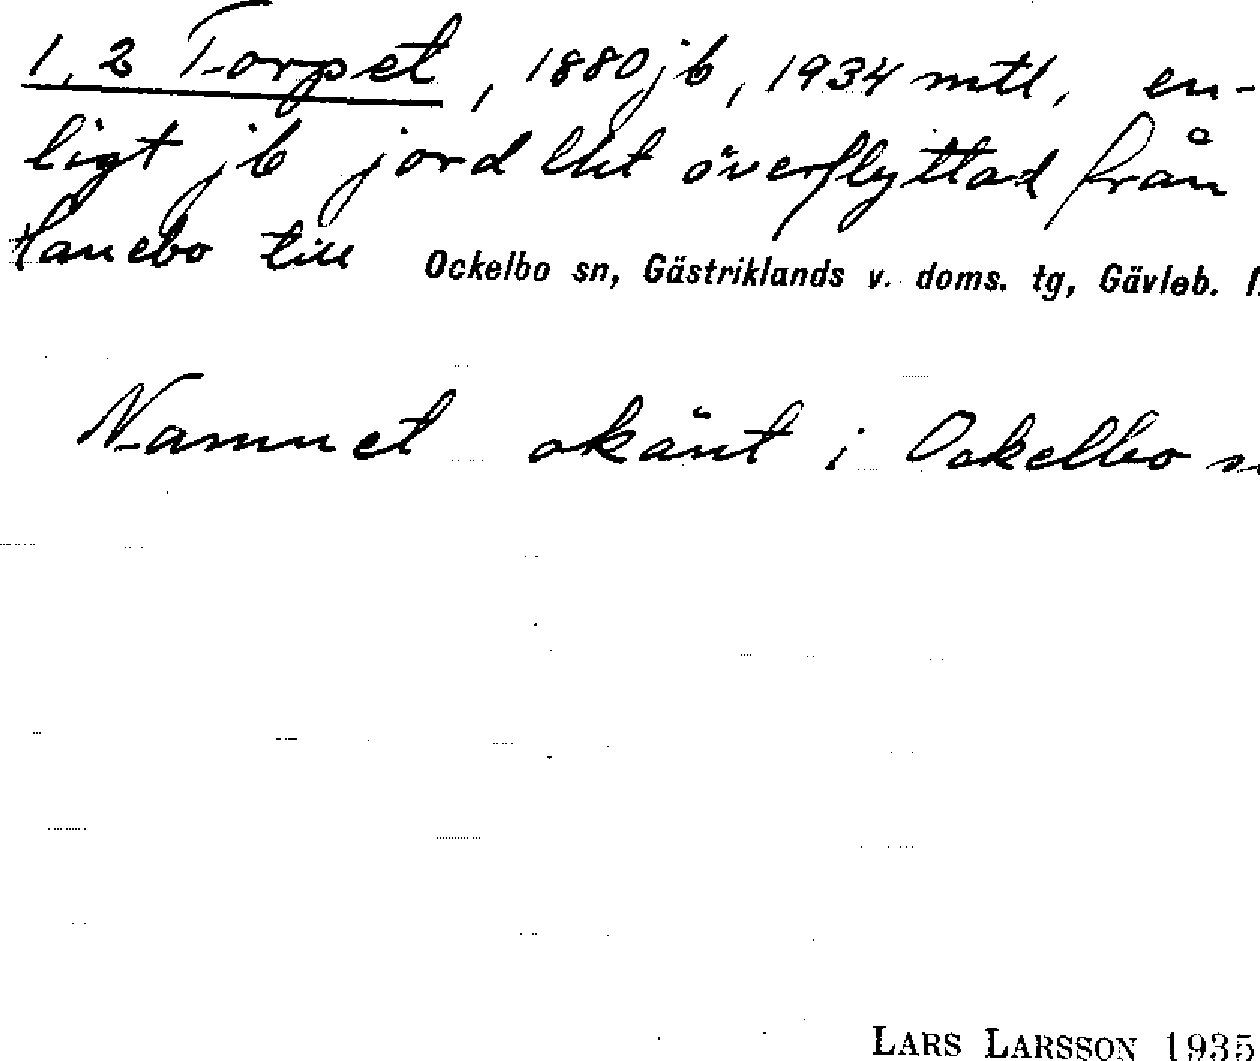 1, 2 Torpet, 1880 jb, 1934 mtl, en-
ligt jb jord överflyttad från
till Ockelbo sn, Gästriklands v. doms. tg, Gävleb. l.
Namnet okänt i Ockelbo
LARS LARSSON 1935